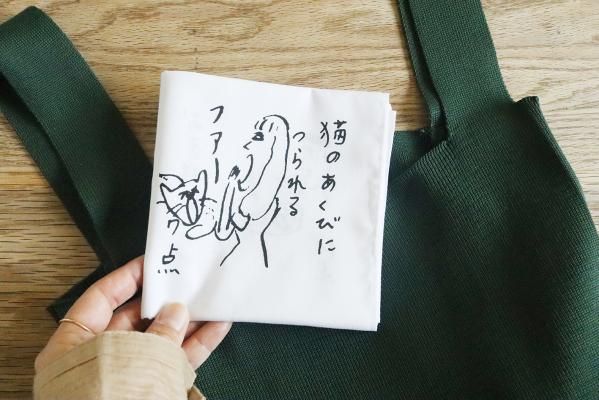 猫のあくびに
つられる
ファー
7点